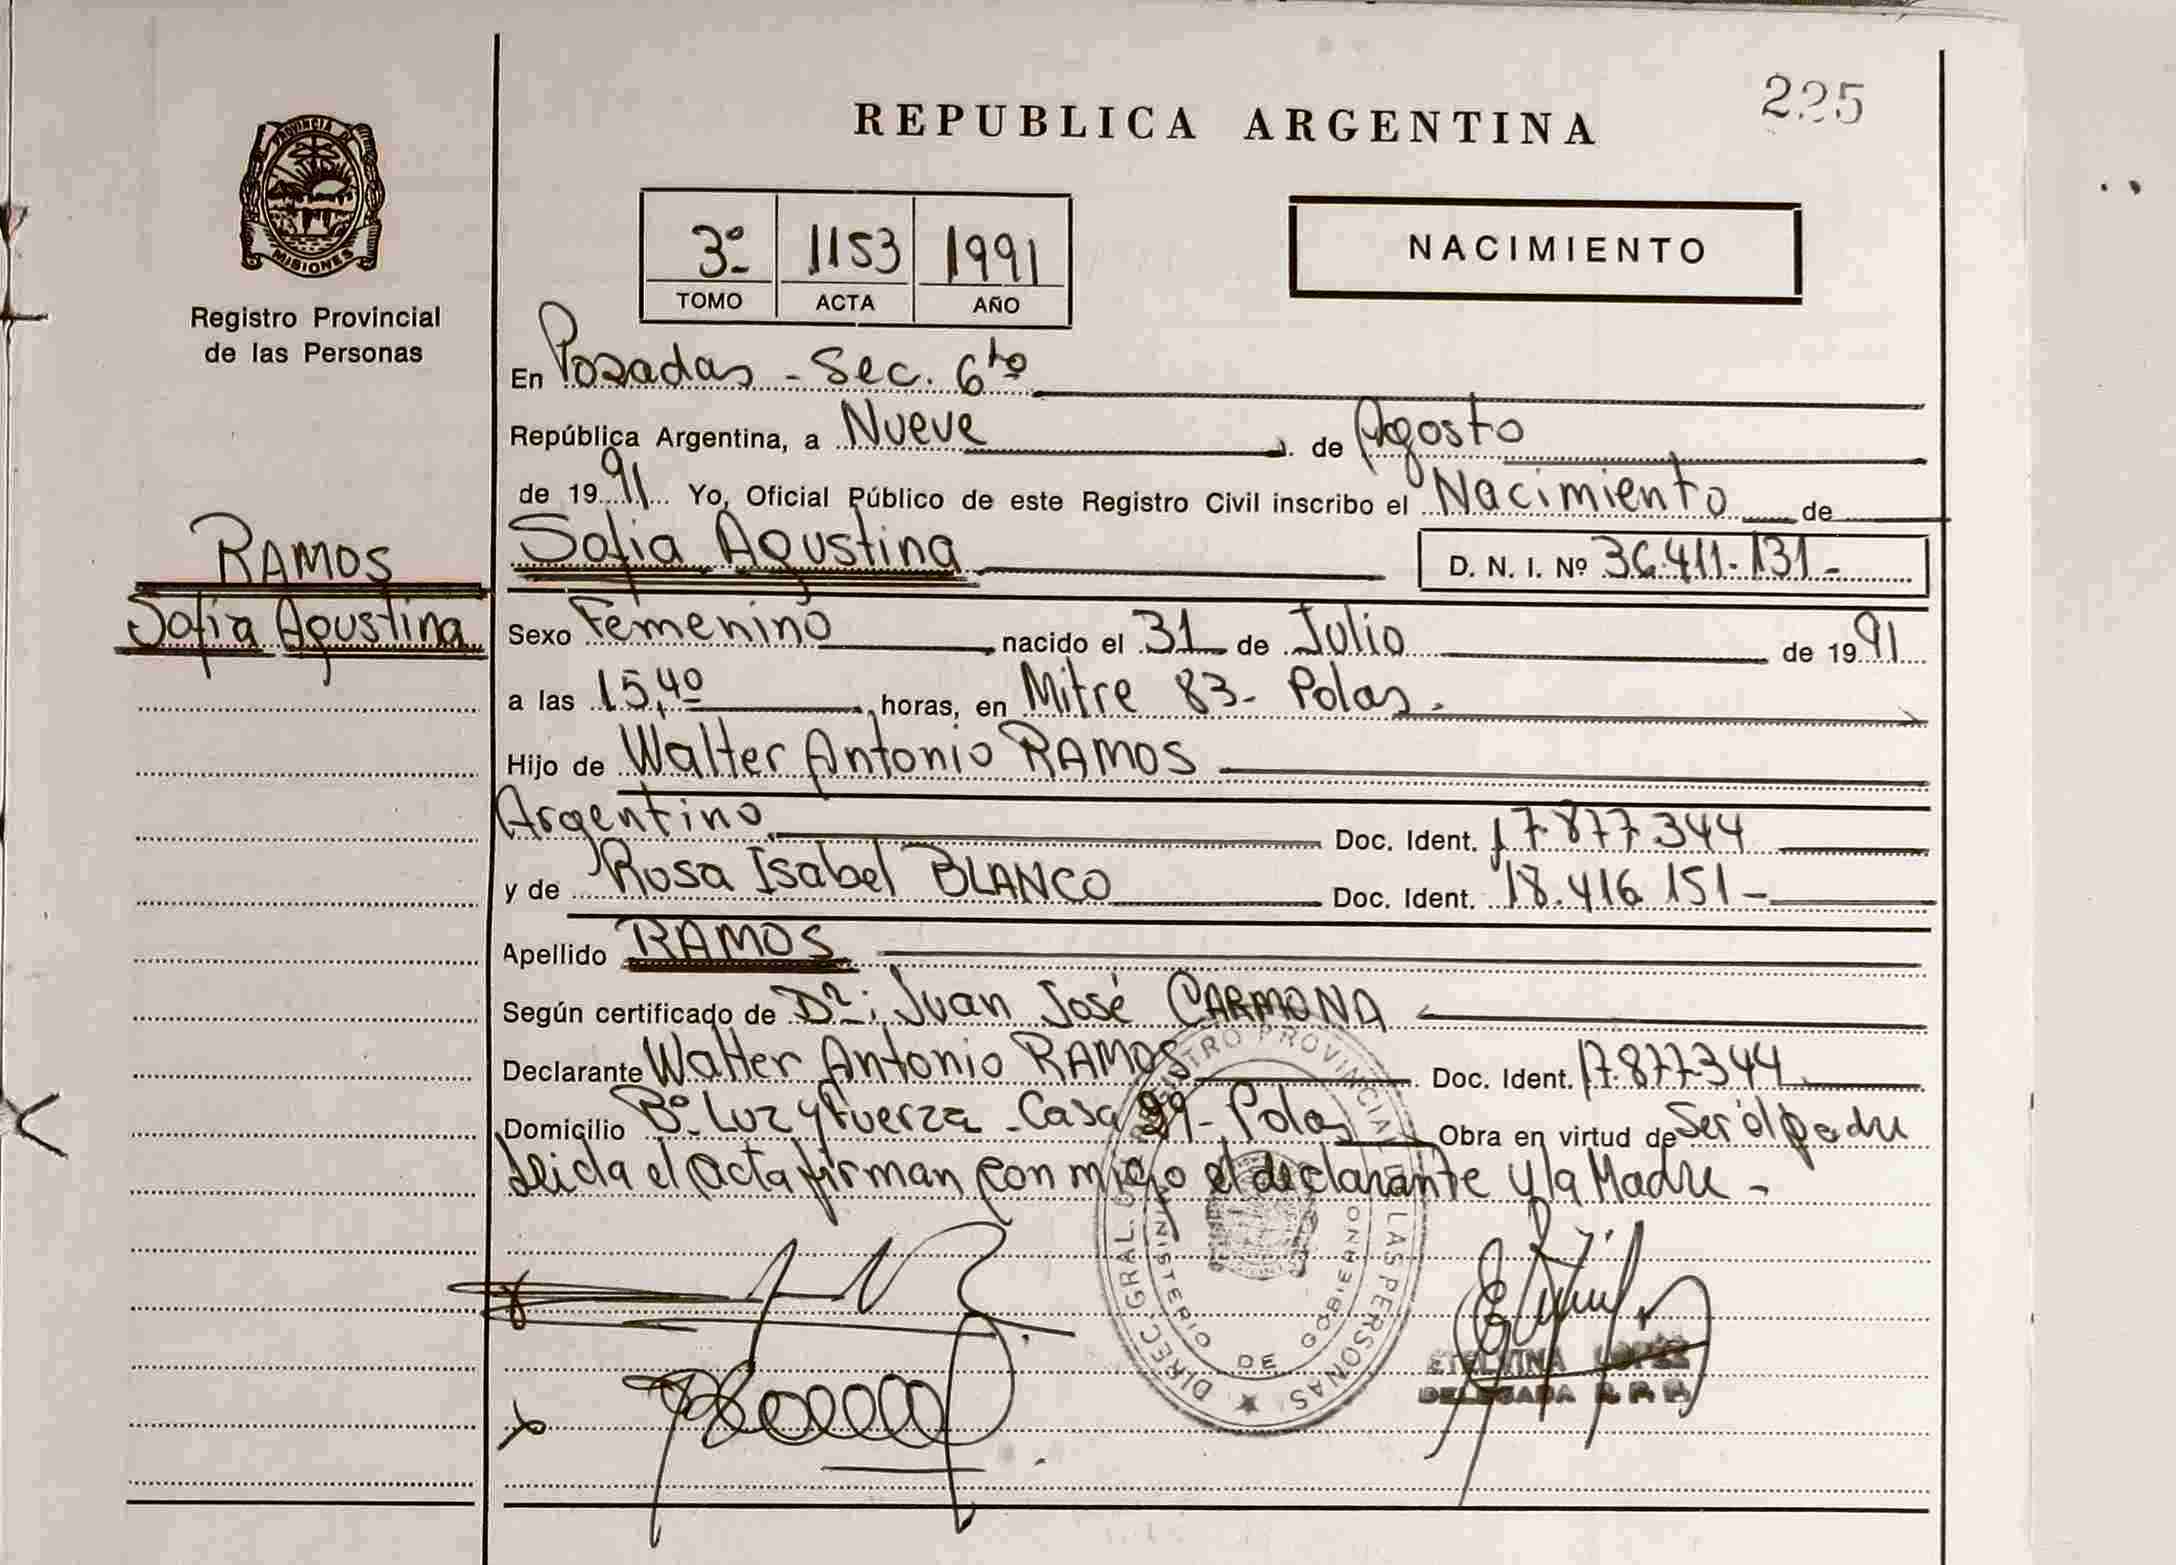 REPUBLICA ARGENTINA
225
PROVINCIA DE
MISIONES
Registro Provincial
de las Personas
3º 1153 1991
TOMO ACTA AÑO
NACIMIENTO
En Posadas - Sec. 6ta
República Argentina, a Nueve de Agosto
de 1991 Yo, Oficial Público de este Registro Civil inscribo el Nacimiento de
RAMOS
Sofia Agustina
Sofia Agustina D. N. I. Nº 36.411.131-
Sexo Femenino nacido el 31 de Julio de 1991
a las 15,40 horas, en Mitre 83- Pdas.
Hijo de Walter Antonio RAMOS
Argentino Doc. Ident. 17.877.344
y de Rosa Isabel BLANCO Doc. Ident. 18.416.151-
Apellido RAMOS
Según certificado de Dr: Juan José CARMONA
Declarante Walter Antonio RAMOS Doc. Ident. 17.877.344
Domicilio Bº Luz y Fuerza - Casa 99- Pdas Obra en virtud de Ser el padre
Leida el acta firman con migo el declarante y la Madre -
DIREC. GRAL. REGISTRO PROVINCIAL DE LAS PERSONAS
MINISTERIO DE GOBIERNO
ETELVINA LOPEZ
DELEGADA R. P. P.